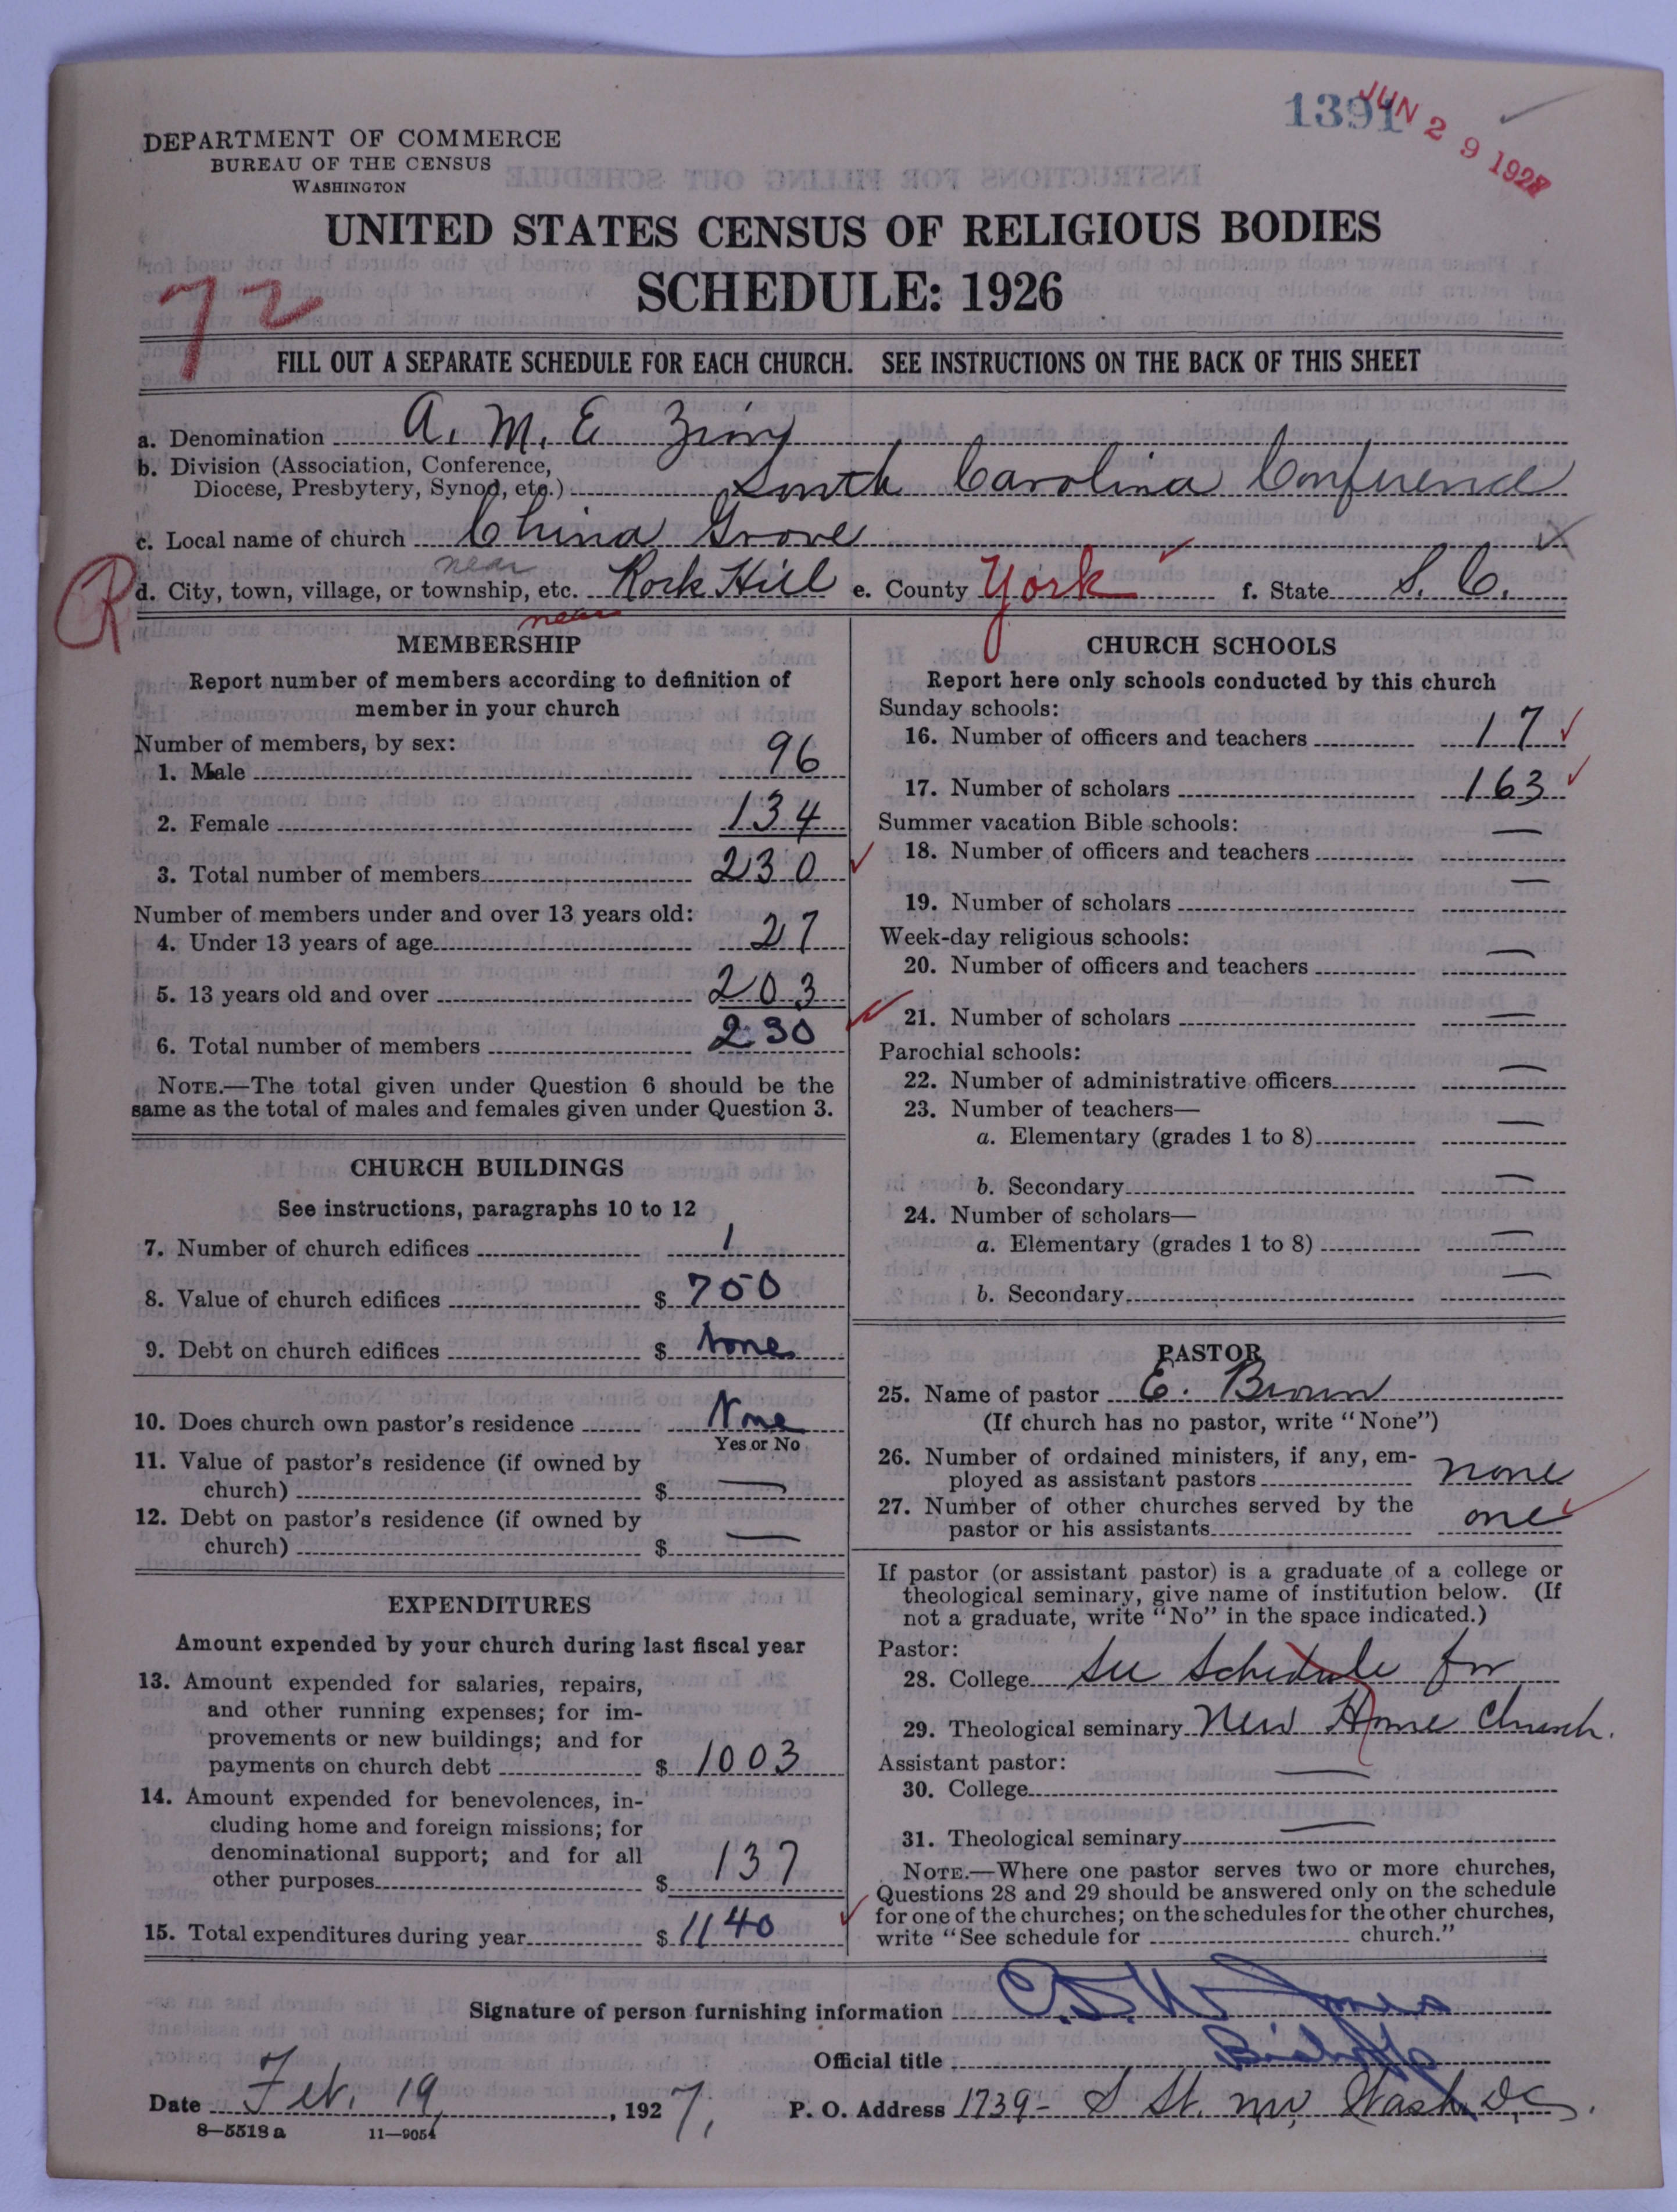 1391
JUN 29 1927
DEPARTMENT OF COMMERCE
BUREAU OF THE CENSUS
WASHINGTON
UNITED STATES CENSUS OF RELIGIOUS BODIES
SCHEDULE: 1926
72
FILL OUT A SEPARATE SCHEDULE FOR EACH CHURCH. SEE INSTRUCTIONS ON THE BACK OF THIS SHEET
a. Denomination A. M. E. Zion
b. Division (Association, Conference,
Diocese, Presbytery, Synod, etc.) South Carolina Conference
c. Local name of church China Grove
near
R d. City, town, village, or township, etc. Rock Hill e. County York f. State S. C.
near
MEMBERSHIP
Report number of members according to definition of
member in your church
Number of members, by sex:
1. Male 96
2. Female 134
3. Total number of members 230
Number of members under and over 13 years old:
4. Under 13 years of age 27
5. 13 years old and over 203
6. Total number of members 230
NOTE.—The total given under Question 6 should be the
same as the total of males and females given under Question 3.
CHURCH BUILDINGS
See instructions, paragraphs 10 to 12
7. Number of church edifices 1
8. Value of church edifices $ 750
9. Debt on church edifices $ None
10. Does church own pastor's residence None
Yes or No
11. Value of pastor's residence (if owned by
church) $ —
12. Debt on pastor's residence (if owned by
church) $ —
EXPENDITURES
Amount expended by your church during last fiscal year
13. Amount expended for salaries, repairs,
and other running expenses; for im-
provements or new buildings; and for
payments on church debt $ 1003
14. Amount expended for benevolences, in-
cluding home and foreign missions; for
denominational support; and for all
other purposes $ 137
15. Total expenditures during year $ 1140
CHURCH SCHOOLS
Report here only schools conducted by this church
Sunday schools:
16. Number of officers and teachers 17
17. Number of scholars 163
Summer vacation Bible schools:
18. Number of officers and teachers —
19. Number of scholars —
Week-day religious schools:
20. Number of officers and teachers —
21. Number of scholars —
Parochial schools:
22. Number of administrative officers —
23. Number of teachers—
a. Elementary (grades 1 to 8) —
b. Secondary —
24. Number of scholars—
a. Elementary (grades 1 to 8) —
b. Secondary —
PASTOR
25. Name of pastor E. Brown
(If church has no pastor, write "None")
26. Number of ordained ministers, if any, em-
ployed as assistant pastors none
27. Number of other churches served by the
pastor or his assistants one
If pastor (or assistant pastor) is a graduate of a college or
theological seminary, give name of institution below. (If
not a graduate, write "No" in the space indicated.)
Pastor:
28. College See Schedule for
29. Theological seminary New Home Church.
Assistant pastor:
30. College —
31. Theological seminary —
NOTE.—Where one pastor serves two or more churches,
Questions 28 and 29 should be answered only on the schedule
for one of the churches; on the schedules for the other churches,
write "See schedule for church."
Signature of person furnishing information Jones
Official title Bishop
Date Feb. 19, 1927.
P. O. Address 1739- S St. nw, Wash. D.C.
8—5518 a 11—9054